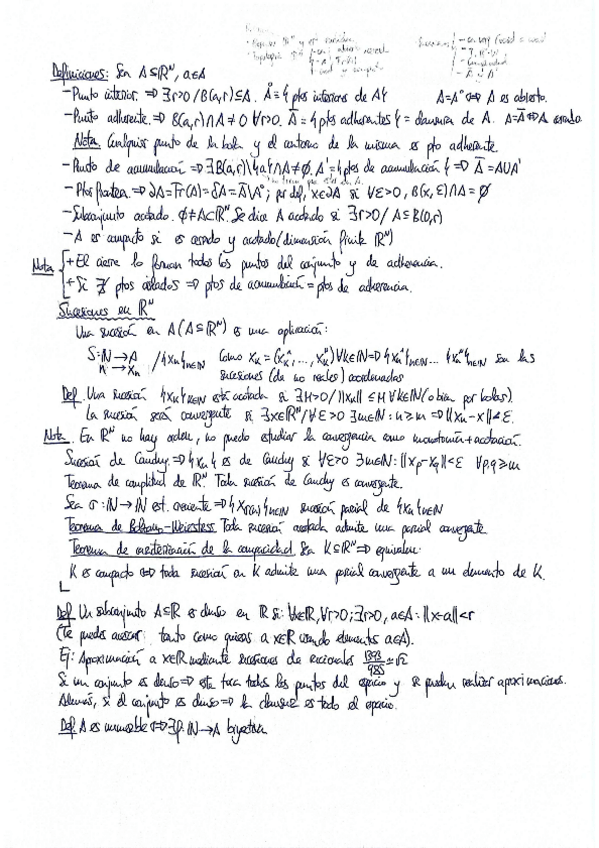 Definiciones: Sea A⊆ℝᴺ, a∈A
- Punto interior. ⇒ ∃r>0 / B(a,r)⊆A. Å = { ptos interiores de A} A=A° ⇔ A es abierto.
- Punto adherente. ⇒ B(a,r)∩A ≠ 0 ∀r>0. Ā = { ptos adherentes } = clausura de A. A=Ā ⇔ A cerrado
Nota. Cualquier punto de la bola y el contorno de la misma es pto adherente.
- Punto de acumulación ⇒ ∃ B(a,r)\{a}∩A≠∅. A' = { ptos de acumulación } ⇒ Ā = A∪A'
- Ptos frontera. ⇒ ∂A = Fr(A) = δA = Ā\A°; por def, x∈∂A si ∀ε>0, B(x,ε)∩A = ∅
- Subconjunto acotado. ∅≠A⊂ℝᴺ. Se dice A acotado si ∃r>0 / A⊆B(0,r)
- A es compacto si es cerrado y acotado (dimensión finita ℝᴺ)
Nota + El cierre lo forman todos los puntos del conjunto y de adherencia.
+ Si ∄ ptos aislados ⇒ ptos de acumulación = ptos de adherencia.
Sucesiones en ℝᴺ
Una sucesión en A (A⊆ℝᴺ) es una aplicación:
S: ℕ → A / {xₙ}ₙ∈ℕ como xₖ = (xₖ¹, ..., xₖᴺ) ∀k∈ℕ ⇒ {xₙ¹}ₙ∈ℕ ... {xₙᴺ}ₙ∈ℕ son las
n → xₙ sucesiones (de nº reales) coordenadas
Def. Una sucesión {xₖ}ₖ∈ℕ está acotada si ∃M>0 / ||xₖ|| ≤ M ∀k∈ℕ (o bien por bolas).
La sucesión será convergente si ∃x∈ℝᴺ / ∀ε>0 ∃m∈ℕ: n≥m ⇒ ||xₙ-x||<ε.
Nota. En ℝᴺ no hay orden, no puedo estudiar la convergencia como monotonía + acotación.
Sucesión de Cauchy. ⇒ {xₙ} es de Cauchy si ∀ε>0 ∃m∈ℕ: ||xp-xq||<ε ∀p,q≥m
Teorema de complitud de ℝᴺ. Toda sucesión de Cauchy es convergente.
Sea σ: ℕ→ℕ est. creciente ⇒ {xσ(n)}ₙ∈ℕ sucesión parcial de {xₙ}ₙ∈ℕ
Teorema de Bolzano-Weierstess Toda sucesión acotada admite una parcial convergente
Teorema de caracterización de la compacidad Sea K⊆ℝᴺ ⇒ equivalen:
K es compacto ⇔ toda sucesión en K admite una parcial convergente a un elemento de K.
Def. Un subconjunto A⊆ℝ es denso en ℝ si: ∀x∈ℝ, ∀r>0; ∃r>0, a∈A: ||x-a||<r
(Te puedes acercar tanto como quieras a x∈ℝ usando elementos a∈A).
Ej: Aproximación a x∈ℝ mediante sucesiones de racionales 1393/985 ≃ √2
Si un conjunto es denso ⇒ este toca todos los puntos del espacio y se pueden realizar aproximaciones.
Además, si el conjunto es denso ⇒ la clausura es todo el espacio.
Def. A es numerable ⇔ ∃f: ℕ→A biyectiva